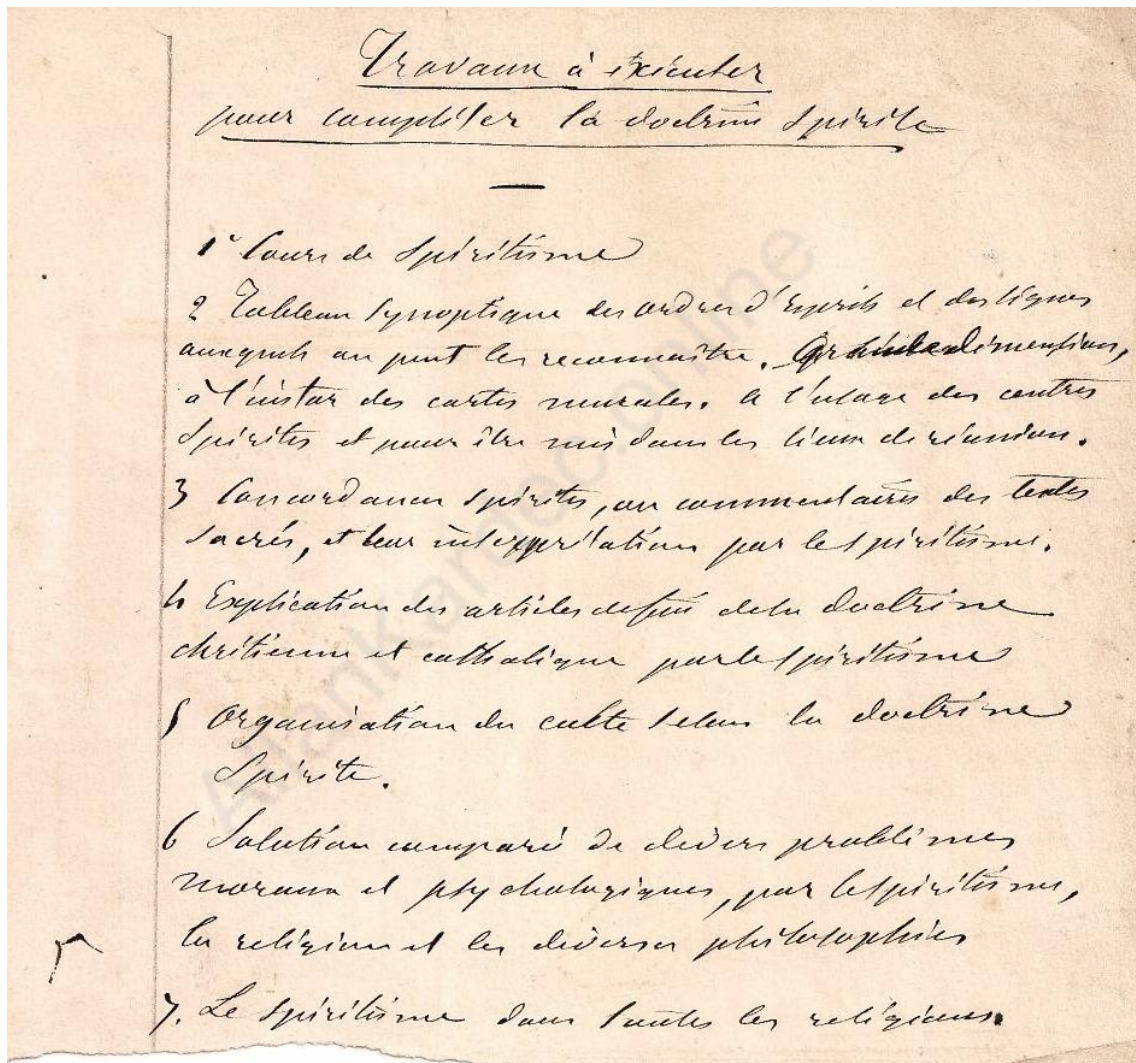 Travaux à exécuter
pour compléter la doctrine spirite
1° Cours de Spiritisme
2 Tableau synoptique des ordres d'Esprits et des signes
auxquels on peut les reconnaître. Grande dimension,
à l'instar des cartes murales. à l'usage des centres
Spirites et pour être mis dans les lieux de réunion.
3 Concordances spirites, ou commentaires des textes
sacrés, et leur interprétation par le spiritisme.
4 Explication des articles de foi de la doctrine
chrétienne et catholique par le spiritisme
5 Organisation du culte selon la doctrine
Spirite.
6 Solution comparée de divers problèmes
moraux et psychologiques, par le spiritisme,
la religion et les diverses philosophies
7. Le Spiritisme dans toutes les religions.
AllanKardec.online